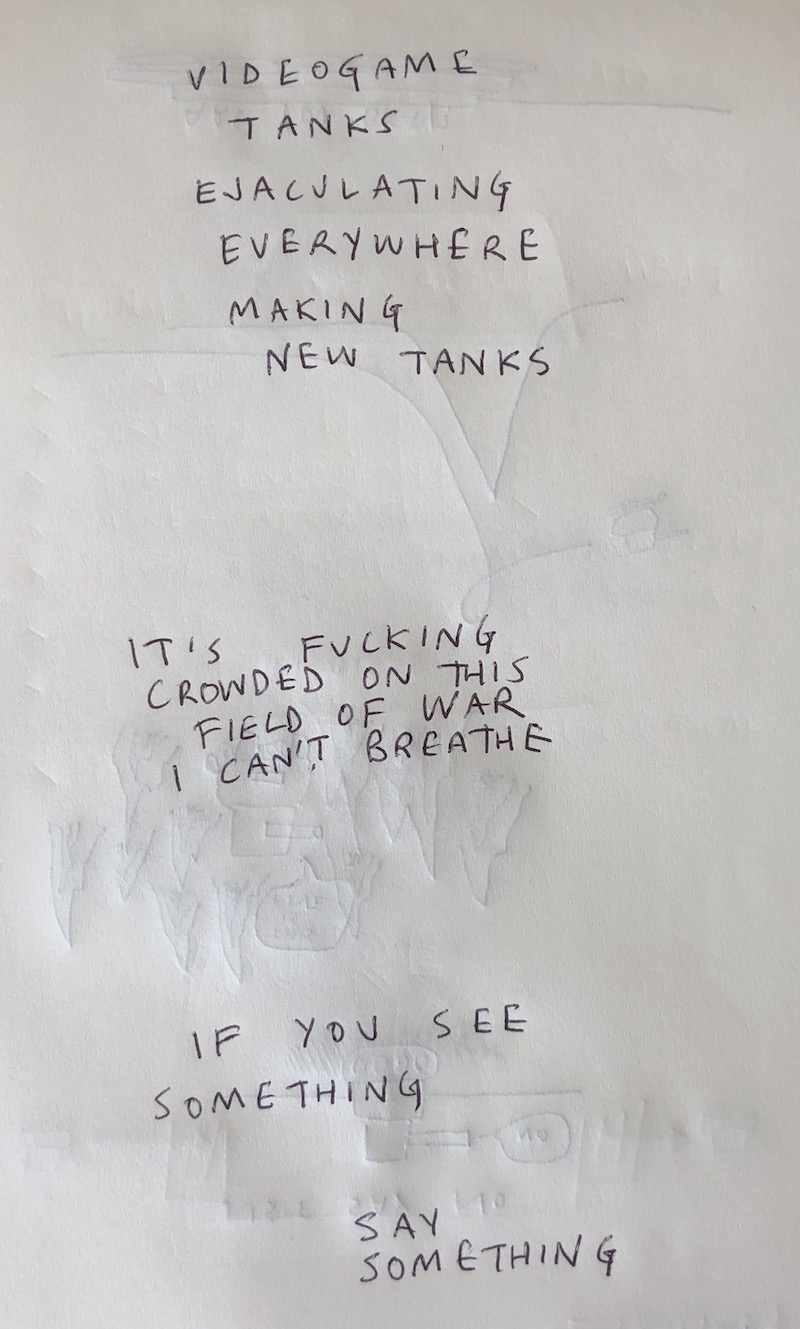 VIDEOGAME
TANKS
EJACULATING
EVERYWHERE
MAKING
NEW TANKS
IT'S FUCKING
CROWDED ON THIS
FIELD OF WAR
I CAN'T BREATHE
IF YOU SEE
SOMETHING
SAY
SOMETHING